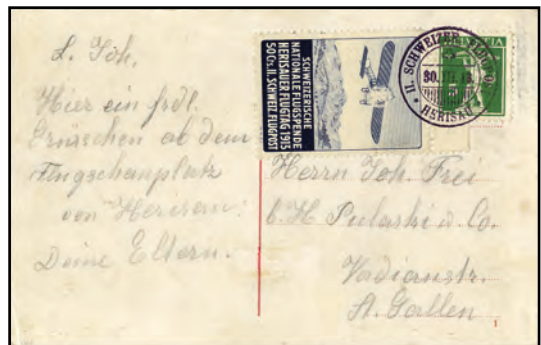 L. Joh,
Hier ein frdl.
Grüsschen ab dem
Flugschauplatz
von Herisau:
Deine Eltern.
SCHWEIZERISCHE
NATIONALE FLUGSPENDE
HERISAUER FLUGTAG 1913
50 Cts. II. SCHWEIZ. FLUGPOST
HELVETIA
II. SCHWEIZER
30. III. 13.
HERISAU
Herrn Joh. Frei
b. H. Pulaski & Co.
Vadianstr.
St. Gallen
1